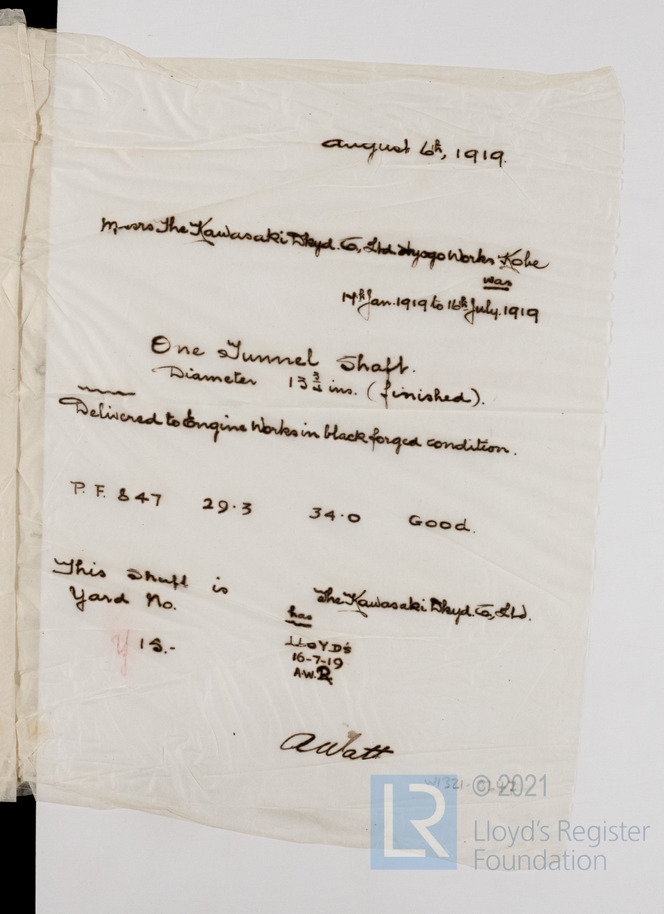 August 6th, 1919.
Messrs The Kawasaki Dkyd. Co, Ltd Hyogo Works Kobe
was
14th Jan. 1919 to 16th July. 1919
One Tunnel Shaft.
Diameter 13 3/4 ins. (finished).
Delivered to Engine Works in black forged condition.
P. F. 847 29.3 34.0 Good.
This Shaft is
Yard No.
The Kawasaki Dkyd. Co, Ltd.
has
Y 15.-
LLOYD'S
16-7-19
A.W.
A Watt
W1321-
© 2021
LR
Lloyd's Register
Foundation